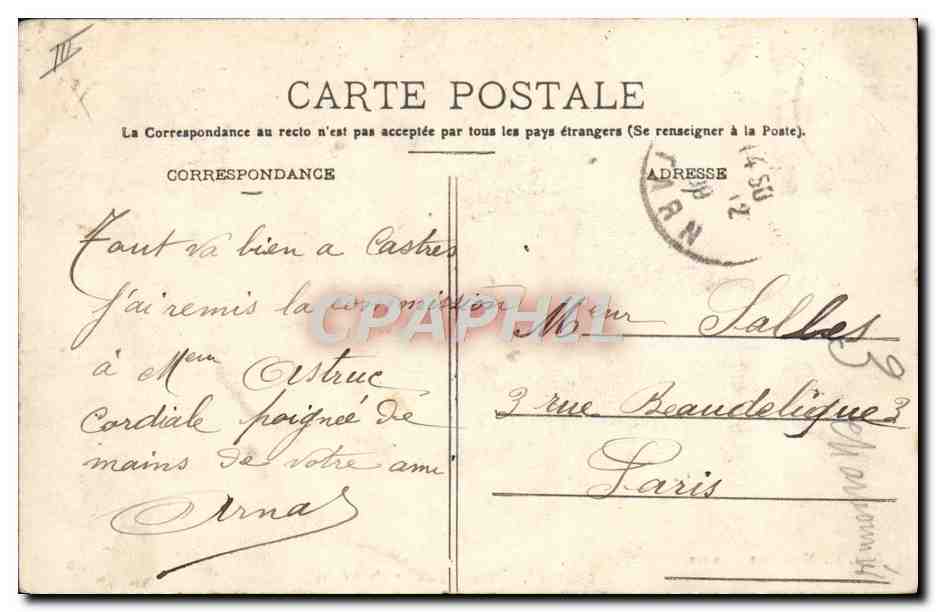 III
CARTE POSTALE
La Correspondance au recto n'est pas acceptée par tous les pays étrangers (Se renseigner à la Poste).
CORRESPONDANCE
ADRESSE
TARN
14 50
Tout va bien a Castres
J'ai remis la commission
à Meur Astruc
Cordiale poignée de
mains de votre ami
Arnal
Meur Salles
3 rue Beaudelique 3
Paris
3
CPAPHIL